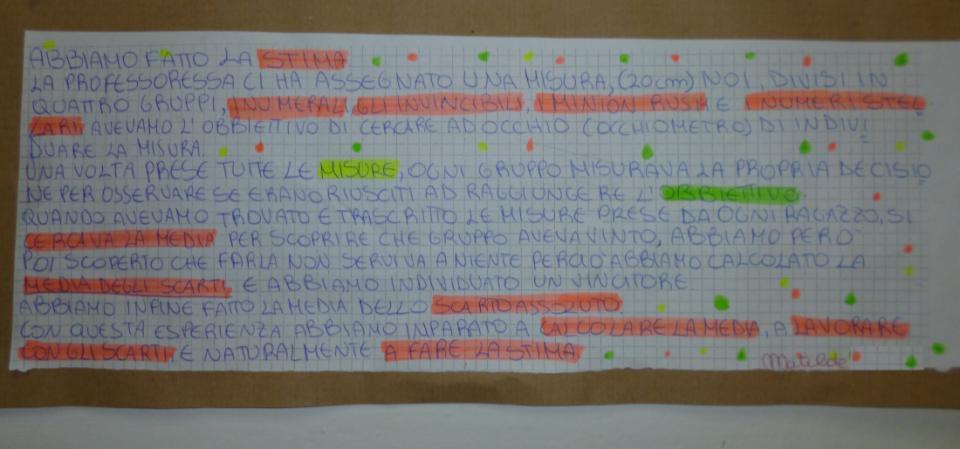 ABBIAMO FATTO LA STIMA
LA PROFESSORESSA CI HA ASSEGNATO UNA MISURA, (20cm) NOI DIVISI IN
QUATTRO GRUPPI, I NUMERALI, GLI INVINCIBILI, I MINION RUSH E I NUMERI STEL
LARI AVEVAMO L'OBBIETTIVO DI CERCARE AD OCCHIO (OCCHIOMETRO) DI INDIVI
DUARE LA MISURA.
UNA VOLTA PRESE TUTTE LE MISURE, OGNI GRUPPO MISURAVA LA PROPRIA DECISIO
NE PER OSSERVARE SE ERANO RIUSCITI AD RAGGIUNGERE L'OBBIETTIVO
QUANDO AVEVAMO TROVATO E TRASCRITTO LE MISURE PRESE DA OGNI RAGAZZO, SI
CERCAVA LA MEDIA PER SCOPRIRE CHE GRUPPO AVEVA VINTO, ABBIAMO PERÒ
POI SCOPERTO CHE FARLA NON SERVIVA A NIENTE PERCIÒ ABBIAMO CALCOLATO LA
MEDIA DEGLI SCARTI, E ABBIAMO INDIVIDUATO UN VINCITORE.
ABBIAMO INFINE FATTO LA MEDIA DELLO SCARTO ASSOLUTO
CON QUESTA ESPERIENZA ABBIAMO INPARATO A CALCOLARE LA MEDIA, A LAVORARE
CON GLI SCARTI, E NATURALMENTE A FARE LA STIMA
Matilde